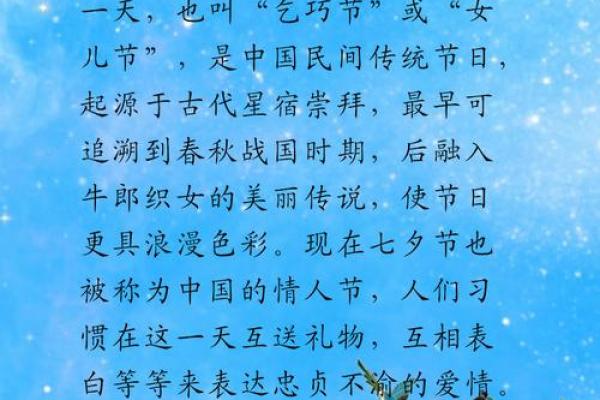 一天，也叫“乞巧节”或“女
儿节”，是中国民间传统节日，
起源于古代星宿崇拜，最早可
追溯到春秋战国时期，后融入
牛郎织女的美丽传说，使节日
更具浪漫色彩。现在七夕节也
被称为中国的情人节，人们习
惯在这一天互送礼物，互相表
白等等来表达忠贞不渝的爱情。